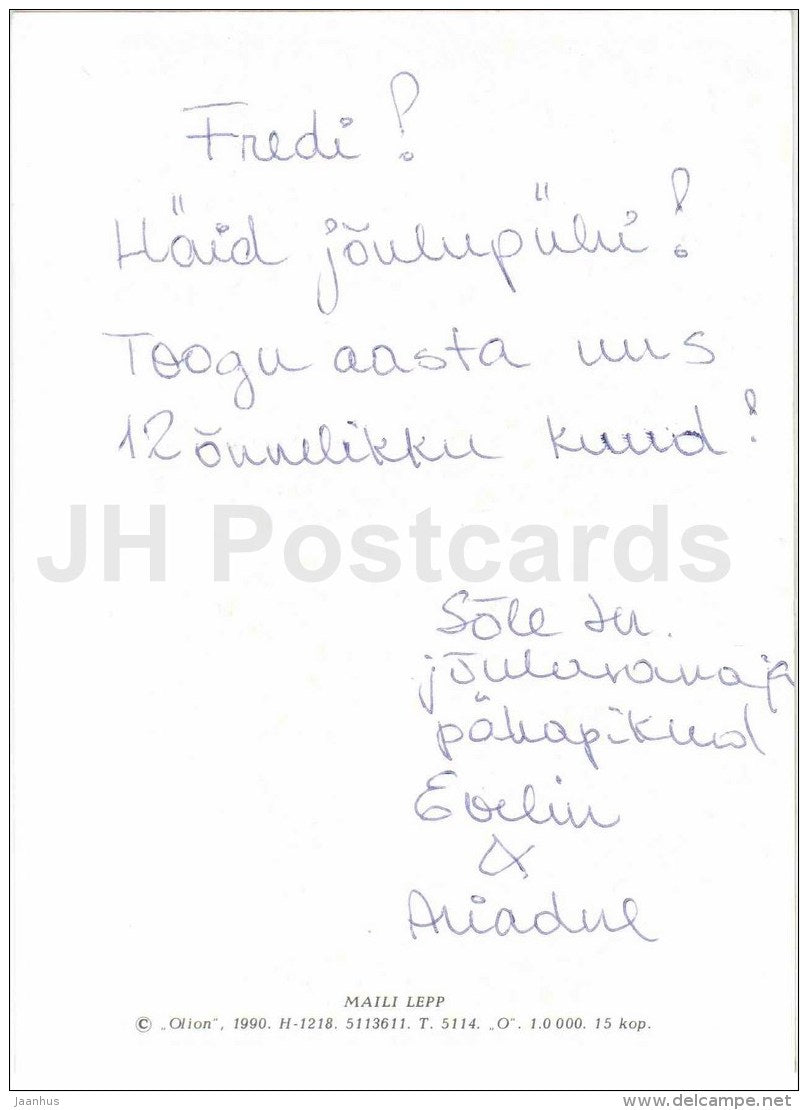 Fredi!
Häid jõulupühi!
Toogu aasta uus
12 õnnelikku kuud!
JH Postcards
Sõle tn.
jõuluvana ja
päkapikud
Evelin
&
Ariadne
MAILI LEPP
© „Olion”, 1990. H-1218. 5113611. T. 5114. „O”. 1.0 000. 15 kop.
Jaanhus
www.delcampe.net